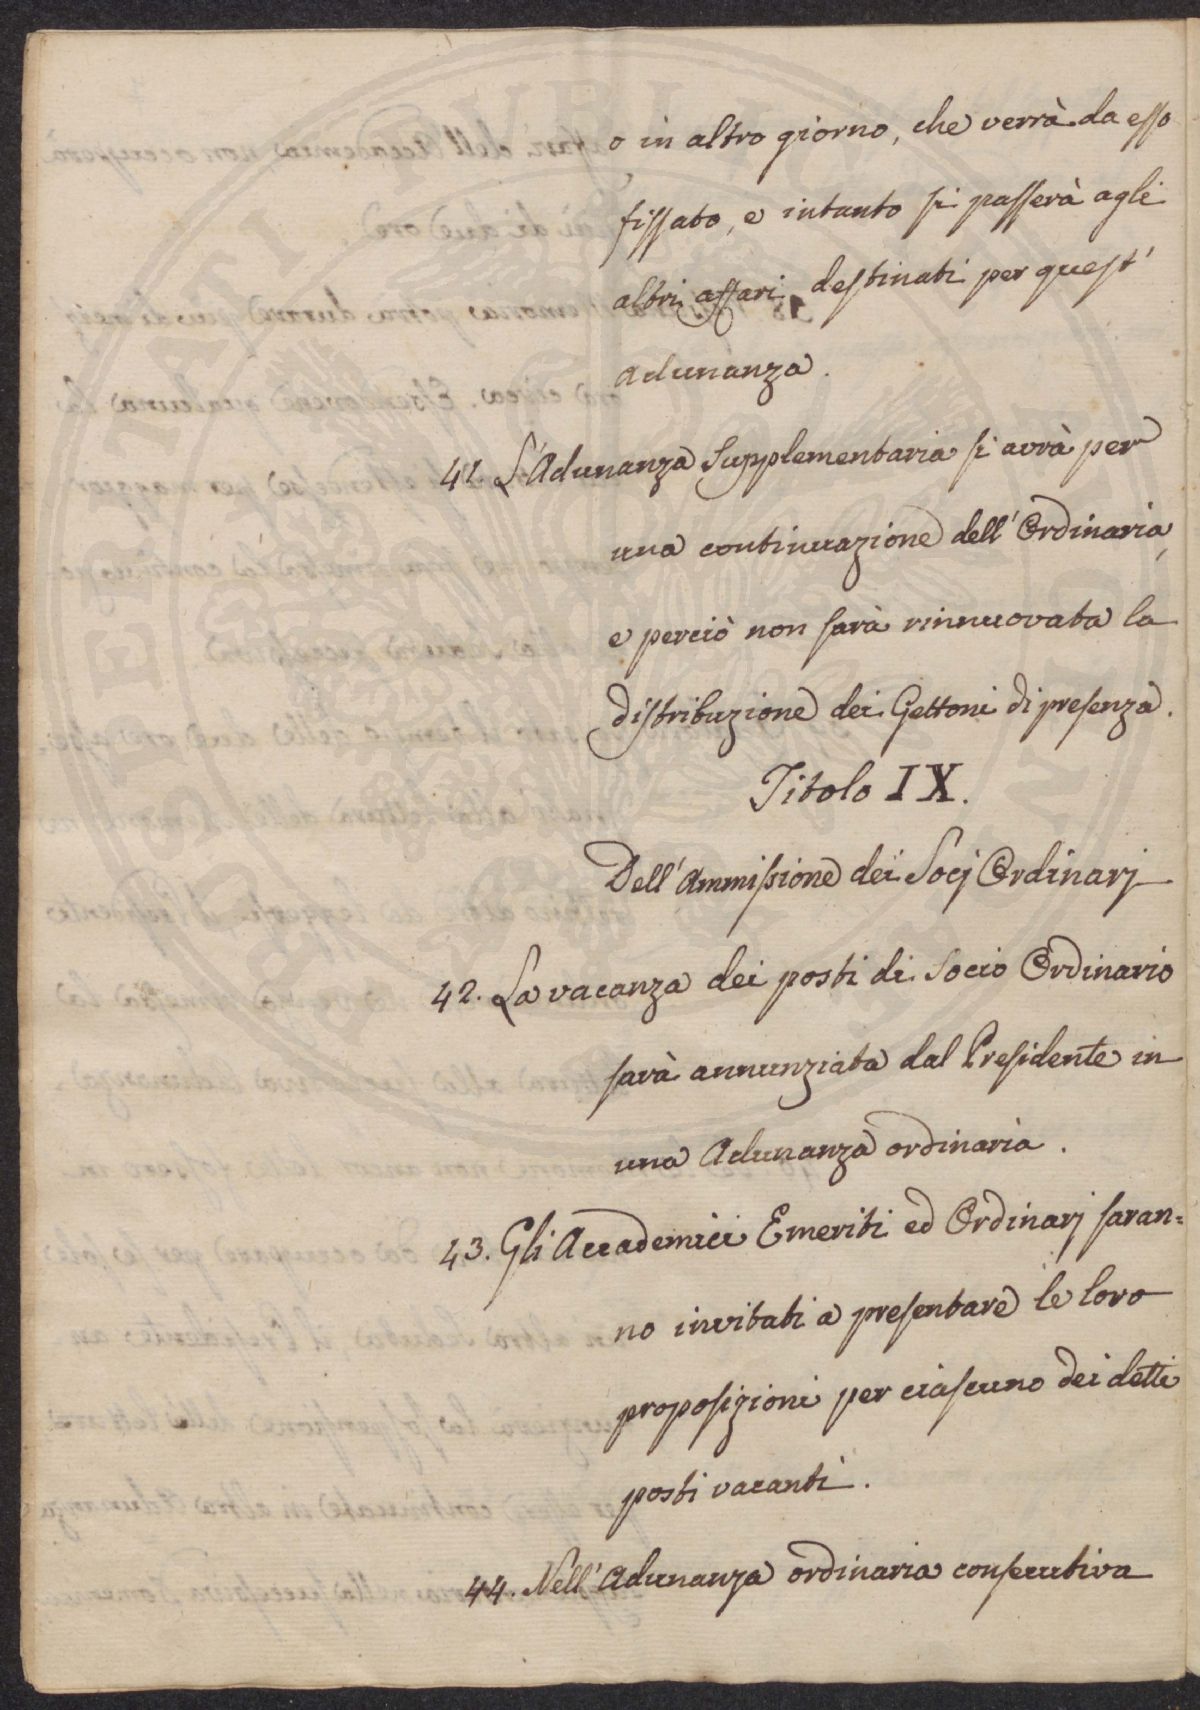 o in altro giorno, che verrà da esso
fissato, e intanto si passerà agli
altri affari destinati per quest'
adunanza.
41. L'Adunanza Supplementaria si avrà per
una continuazione dell'Ordinaria,
e perciò non sarà rinnuovata la
distribuzione dei Gettoni di presenza.
Titolo IX.
Dell'Ammissione dei Socj Ordinarj
42. La vacanza dei posti di Socio Ordinario
sarà annunziata dal Presidente in
una Adunanza ordinaria.
43. Gli Accademici Emeriti ed Ordinarj saran=
no invitati a presentare le loro
proposizioni per ciascuno dei detti
posti vacanti.
44. Nell'Adunanza ordinaria consecutiva